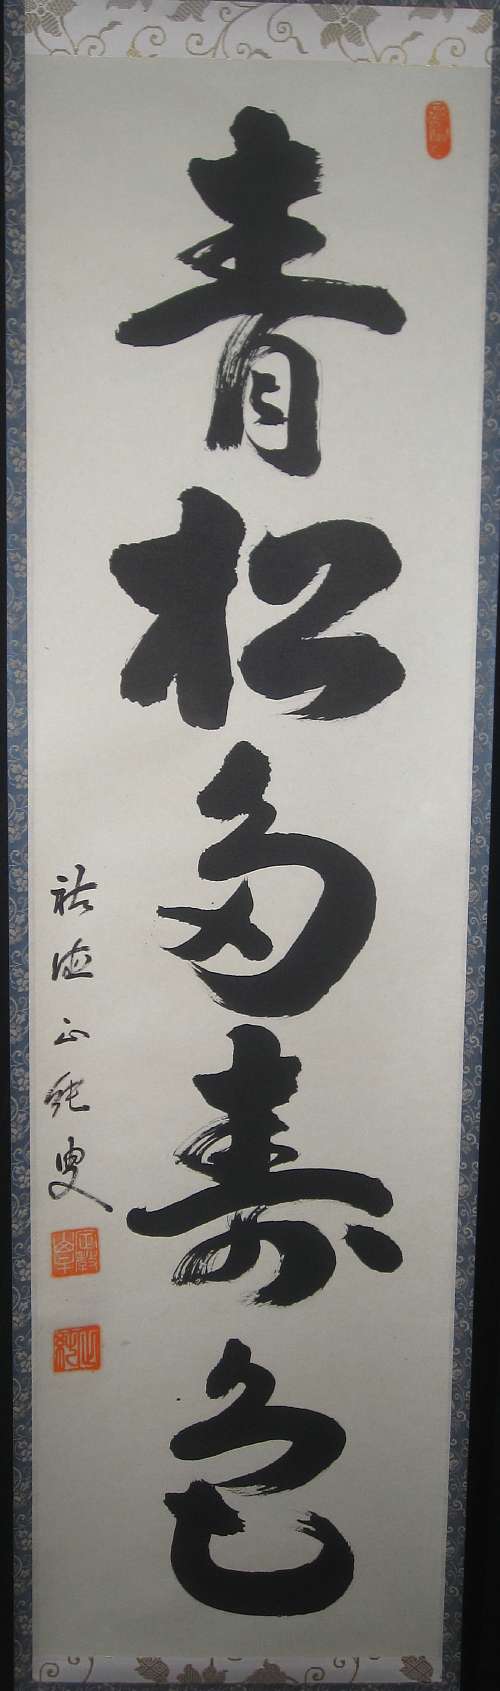 青松多寿色
祐徳山純叟